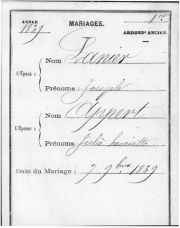 ANNÉE
1839
MARIAGES.
1er
ARROND^t ANCIEN.
L'Époux :
Nom Panier
Prénoms : Joseph
L'Épouse :
Nom Appert
Prénoms : Julie henriette
Date du Mariage : 7 9bre 1839